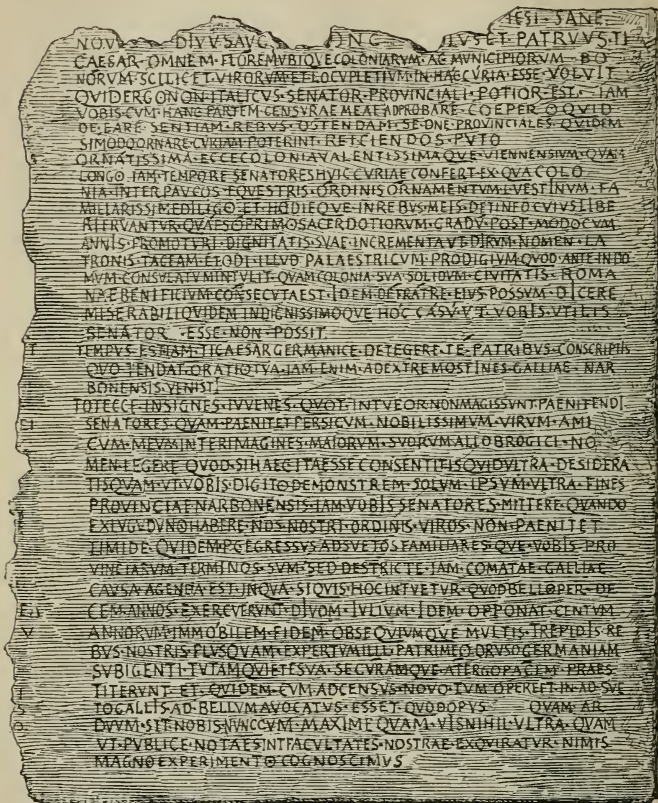 IESI · SANE
NOVO DIVVS AVG ONC LVS ET PATRVVS TI
CAESAR · OMNEM · FLOREM VBIQVE COLONIARVM · AC MVNICIPIORVM · BO
NORVM · SCILICET · VIRORVM · ET LOCVPLETIVM · IN HAC CVRIA · ESSE · VOLVIT
QVID ERGO NON · ITALICVS · SENATOR · PROVINCIALI · POTIOR · EST · IAM
VOBIS · CVM · HANC PARTEM · CENSVRAE MEAE ADPROBARE · COEPERO QVID
DE · EA RE · SENTIAM · REBVS · OSTENDAM · SED NE · PROVINCIALES · QVIDEM
SI MODO ORNARE · CVRIAM POTERINT · REICIENDOS · PVTO
ORNATISSIMA · ECCE COLONIA VALENTISSIMAQVE · VIENNENSIVM · QVAM
LONGO · IAM · TEMPORE · SENATORES HVIC CVRIAE CONFERT · EX QVA COLO
NIA · INTER PAVCOS · EQVESTRIS · ORDINIS · ORNAMENTVM · L VESTINVM · FA
MILIARISSIME DILIGO · ET HODIEQVE · IN REBVS · MEIS · DETINEO CVIVS LIBE
RI FRVANTVR · QVAESO PRIMO SACERDOTIORVM · GRADV · POST · MODO CVM
ANNIS · PROMOTVRI · DIGNITATIS · SVAE · INCREMENTA VT DIRVM · NOMEN · LA
TRONIS · TACEAM · ET ODI · ILLVD · PALAESTRICVM · PRODIGIVM · QVOD · ANTE · IN DO
MVM · CONSVLATVM INTVLIT · QVAM COLONIA · SVA SOLIDVM · CIVITATIS · ROMA
NAE BENIFICIVM · CONSECVTA EST · IDEM DE FRATRE · EIVS · POSSVM · DICERE
MISERABILI QVIDEM · INDIGNISSIMOQVE · HOC CASV · VT · VOBIS · VTILIS
SENATOR · ESSE · NON · POSSIT
TEMPVS · EST IAM · TI CAESAR GERMANICE · DETEGERE · TE · PATRIBVS · CONSCRIPTIS
QVO · TENDAT · ORATIO TVA · IAM · ENIM · AD EXTREMOS FINES · GALLIAE · NAR
BONENSIS · VENISTI
TOT ECCE · INSIGNES · IVVENES · QVOT · INTVEOR NON MAGIS SVNT · PAENITENDI
SENATORES · QVAM · PAENITET PERSICVM · NOBILISSIMVM · VIRVM · AMI
CVM · MEVM INTER IMAGINES · MAIORVM · SVORVM ALLOBROGICI · NO
MEN · LEGERE · QVOD · SI HAEC ITA ESSE CONSENTITIS QVID VLTRA · DESIDERA
TIS QVAM · VT · VOBIS · DIGITO DEMONSTREM · SOLVM · IPSVM · VLTRA · FINES
PROVINCIAE NARBONENSIS · IAM · VOBIS · SENATORES · MITTERE · QVANDO
EX LVGVDVNO HABERE · NOS · NOSTRI · ORDINIS · VIROS · NON · PAENITET
TIMIDE · QVIDEM · P C EGRESSVS · ADSVETOS FAMILIARES · QVE · VOBIS · PRO
VINCIARVM · TERMINOS · SVM · SED DESTRICTE · IAM · COMATAE · GALLIAE
CAVSA · AGENDA · EST · IN QVA · SI QVIS · HOC INTVETVR · QVOD BELLO PER · DE
CEM ANNOS · EXERCVERVNT · DIVOM · IVLIVM · IDEM · OPPONAT · CENTVM
ANNORVM · IMMOBILEM · FIDEM · OBSEQVIVMQVE · MVLTIS · TREPIDIS · RE
BVS · NOSTRIS · PLVSQVAM · EXPERTVM ILLI · PATRI MEO · DRVSO GERMANIAM
SVBIGENTI · TVTAM QVIETE SVA · SECVRAMQVE · A TERGO PACEM · PRAES
TITERVNT · ET · QVIDEM · CVM · AD CENSVS · NOVO · TVM · OPERE ET · IN AD SVE
TO GALLIS · AD · BELLVM AVOCATVS · ESSET · QVOD OPVS QVAM · AR
DVVM · SIT · NOBIS · NVNC CVM · MAXIME QVAM · VIS NIHIL · VLTRA · QVAM
VT · PVBLICE · NOTAE SINT FACVLTATES · NOSTRAE · EXQVIRATVR · NIMIS
MAGNO EXPERIMENTO COGNOSCIMVS